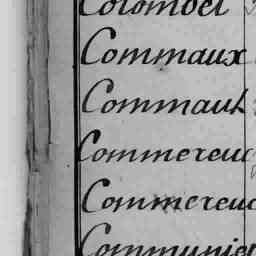 Colombel
Commaux
Commault
Commereuc
Commereuc
Communier